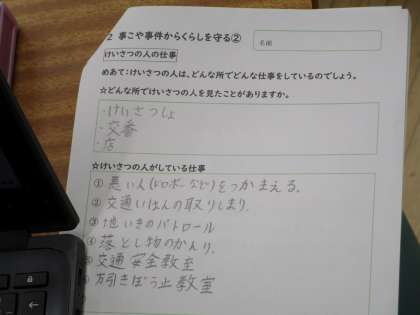 2 事こや事件からくらしを守る②
名前
けいさつの人の仕事
めあて:けいさつの人は、どんな所でどんな仕事をしているのでしょう。
☆どんな所でけいさつの人を見たことがありますか。
・けいさつしょ
・交番
・店
☆けいさつの人がしている仕事
① 悪い人(ドロボーなど)をつかまえる。
② 交通いはんの取りしまり。
③ 地いきのパトロール
④ 落とし物のかんり。
⑤ 交通安全教室
⑥ 万引きぼう止教室